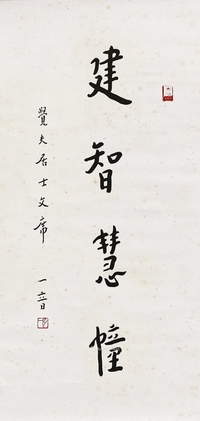 建智慧幢
覺夫居士文席
一音